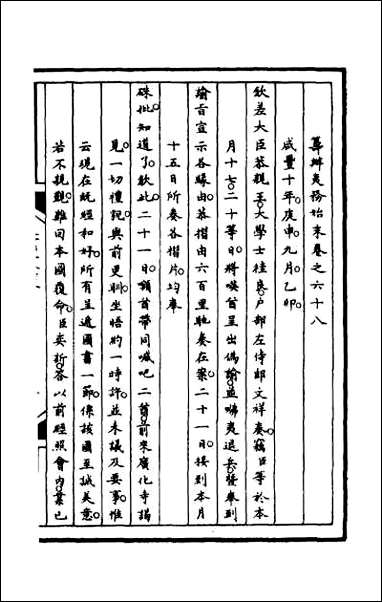 籌辦夷務始末卷之六十八
咸豐十年庚申九月乙卯
欽差大臣恭親王大學士桂良戶部左侍郎文祥奏竊臣等於本
月十七二十等日將噗首呈出偽諭並咈夷退兵確奏到
諭旨宣示各緣由恭摺由六百里馳奏在案二十一日接到本月
十五日所奏各摺片均奉
硃批知道了欽此二十一日額首帶同喊吧二酋前來廣化寺謁
見一切禮貌與前更馴坐語約一時許並未議及要事惟
云現在既經和好所有呈遞國書一節係該國至誠美意
若不親覲難回本國覆命臣奕訢答以前經照會內業已